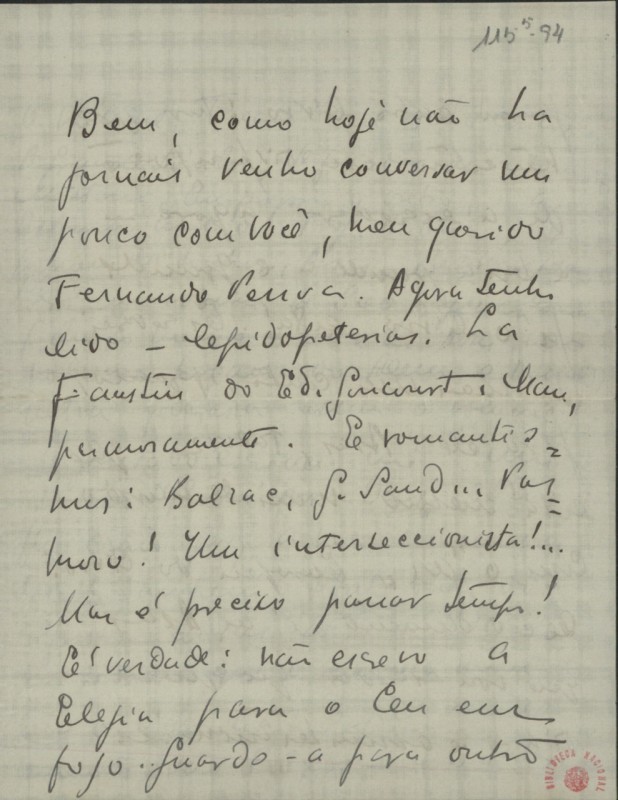 115⁵-94
Bem, como hoje não ha
jornais venho conversar um
pouco com você, meu querido
Fernando Pessoa. Agora tenho
lido – lepidopterias. La
Faustin do Ed. Goncourt: Mau,
primorosamente. E romantis=
mos: Balzac, G. Sand... Pas=
moso! Um interseccionista!...
Mas é preciso passar tempo!
E' verdade: não escrevo a
Elegia para o Ceu em
fogo. Guardo-a para outro
BIBLIOTECA NACIONAL